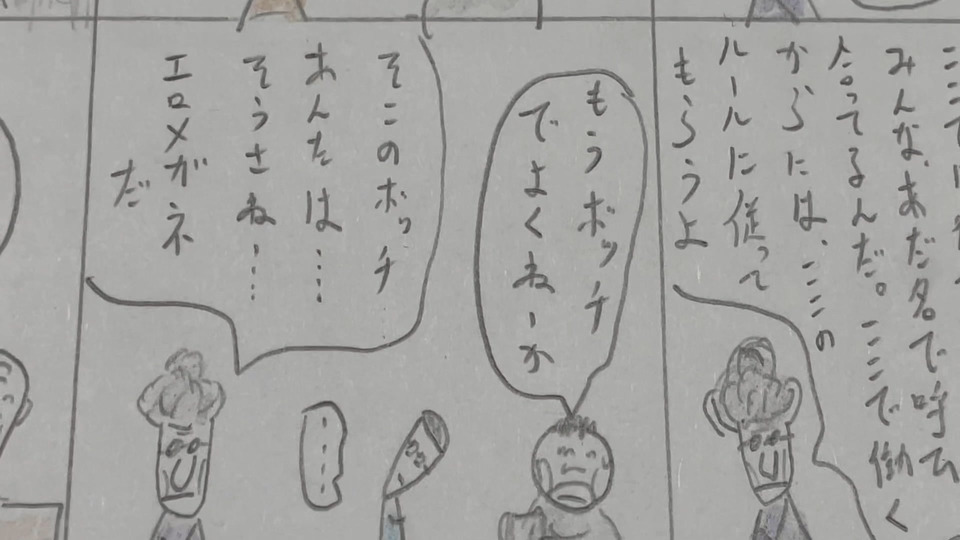 みんな、あだ名で呼び
合ってるんだ。ここで働く
からには、ここの
ルールに従って
もらうよ
もうボッチ
でよくねーか
そこのボッチ
あんたは……
そうさね……
エロメガネ
だ
……